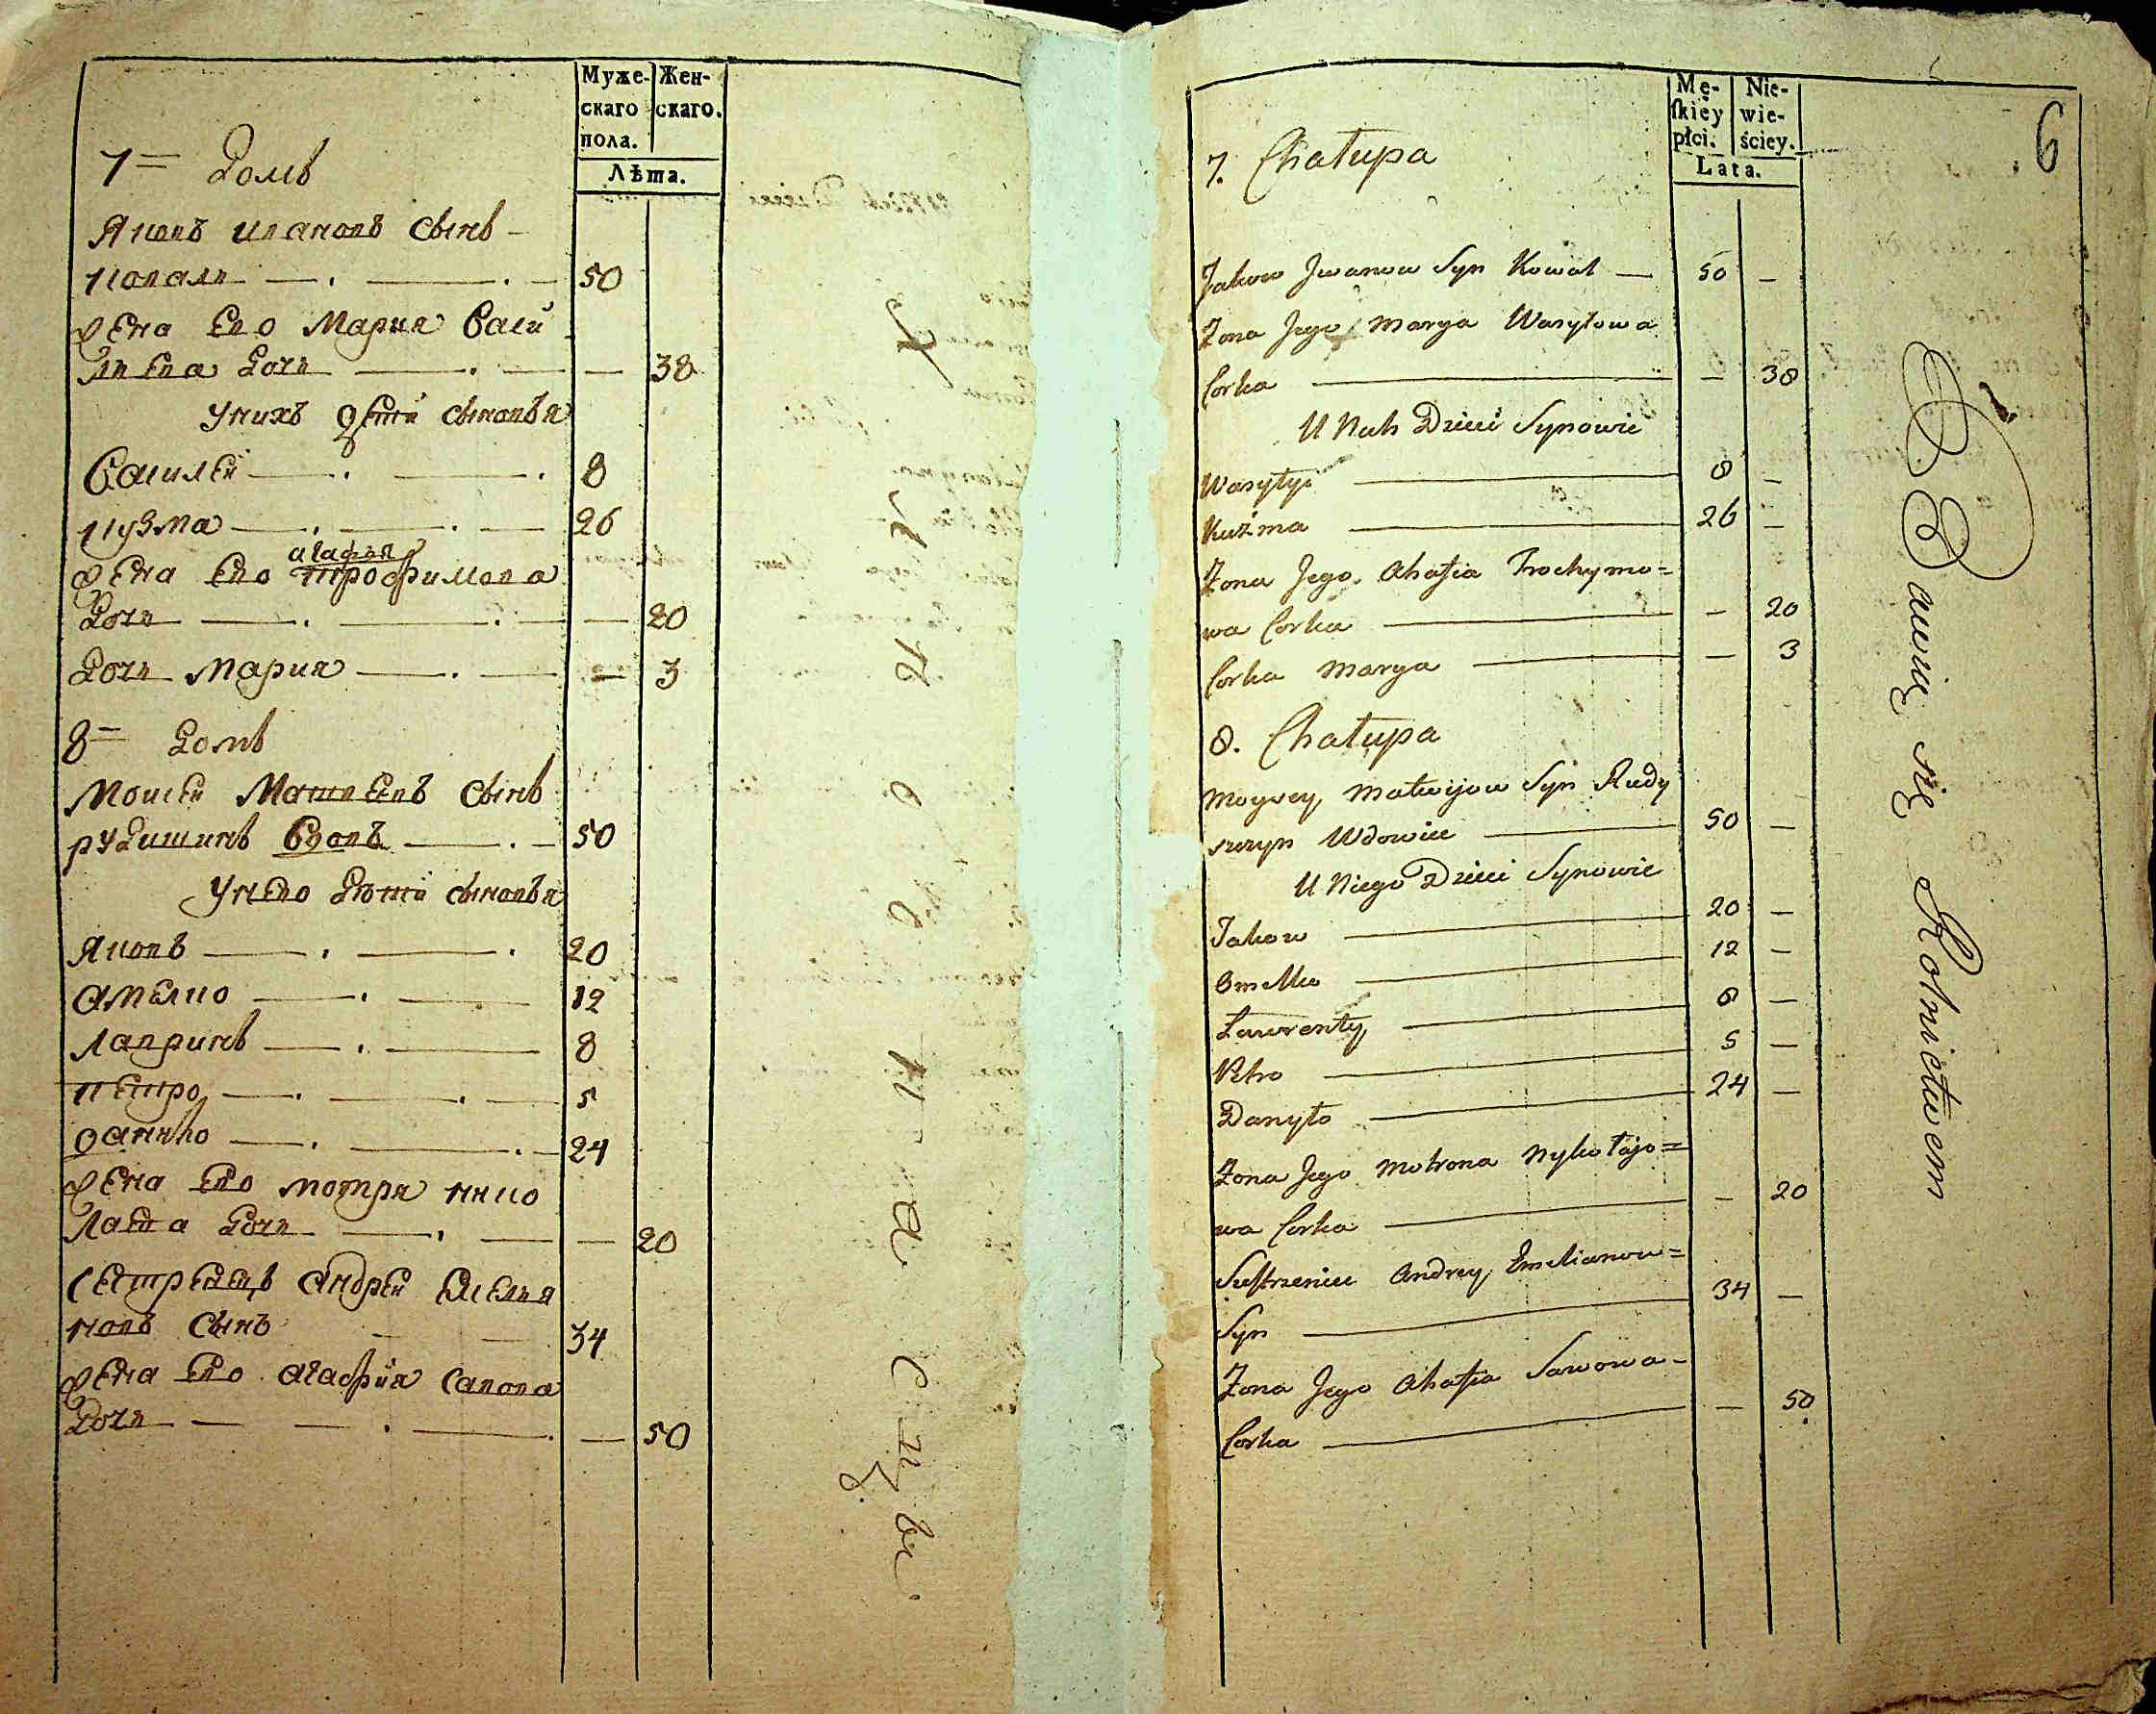 Муже-
скаго
пола.
Жен-
скаго.
Лѣта.
7= Домъ
Яковъ Ивановъ сынъ
Коваль 50
жена Его Мария Васи
льева дочь — 38
Унихъ дети сыновья
Василей 8
Кузма 26
агафия
жена Ево трофимова
дочь — 20
дочь Мария — 3
8= домъ
Моисей Матвеевъ сынъ
рудишинъ вдовъ 50
Унево дѣти сыновья
Яковъ 20
Омелко 12
Лавринъ 8
петро 5
данило 24
жена Ево мотря нико
лаева дочь — 20
Сестренецъ андрей емелия
новъ сынъ 34
жена Ево агафия савова
дочь — 50
6
Mę-
ſkiéy
płci.
Nie-
wie-
ściey.
Lata.
7. Chałupa
Jakow Jwanow Syn Kowal — 50 —
Żona Jego Marya Wasyłowa
Corka — 38
U Nich Dzieci Synowie
Wasyłyi 8 —
Kuźma 26 —
Żona Jego Ahafia Trochymo=
wa Corka — 20
Corka Marya — 3
8. Chałupa
Moysey Matwijow Syn Rudy
szczyn Wdowiec 50 —
U Niego Dzieci Synowie
Jakow 20 —
Omelko 12 —
Ławrenty 8 —
Petro 5 —
Danyło 24 —
Żona Jego Motrona Nykołajo=
wa Corka — 20
Siestrzeniec Andrey Emelianow=
Syn 34 —
Żona Jego Ahafia Sawowa-
Corka — 50
Bawią się Rolnictwem